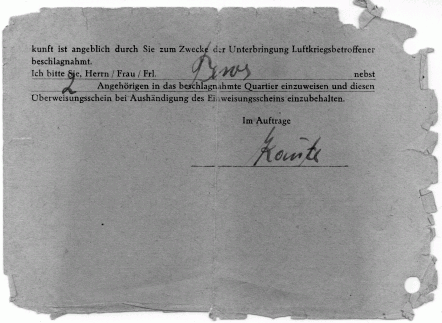 kunft ist angeblich durch Sie zum Zwecke der Unterbringung Luftkriegsbetroffener
beschlagnahmt.
Ich bitte Sie, Herrn / Frau / Frl. nebst
2 Angehörigen in das beschlagnahmte Quartier einzuweisen und diesen
Überweisungsschein bei Aushändigung des Einweisungsscheins einzubehalten.
Im Auftrage